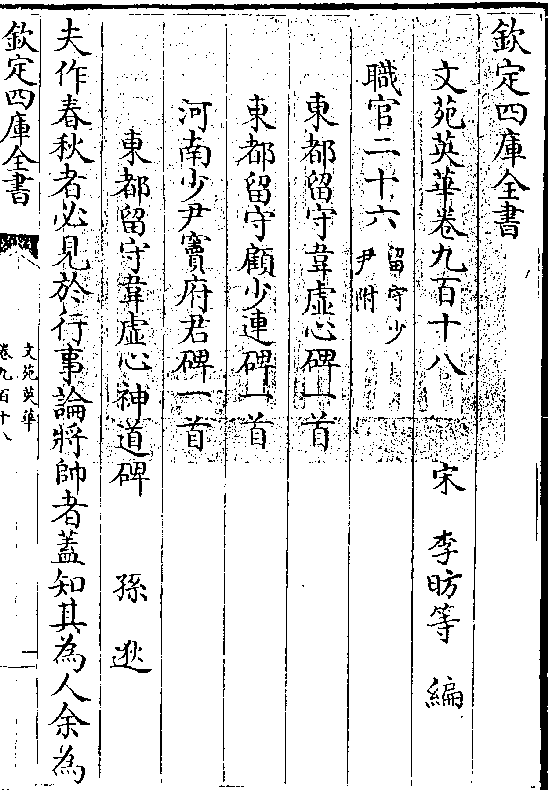 欽定四庫全書
文苑英華卷九百十八　宋　李昉等　編
職官二十六留守少尹附
東都留守韋虛心碑一首
東都留守顧少連碑一首
河南少尹竇府君碑一首
東都留守韋虛心神道碑　孫逖
夫作春秋者必見於行事論將帥者蓋知其為人余為
欽定四庫全書
文苑英華
卷九百十八
一